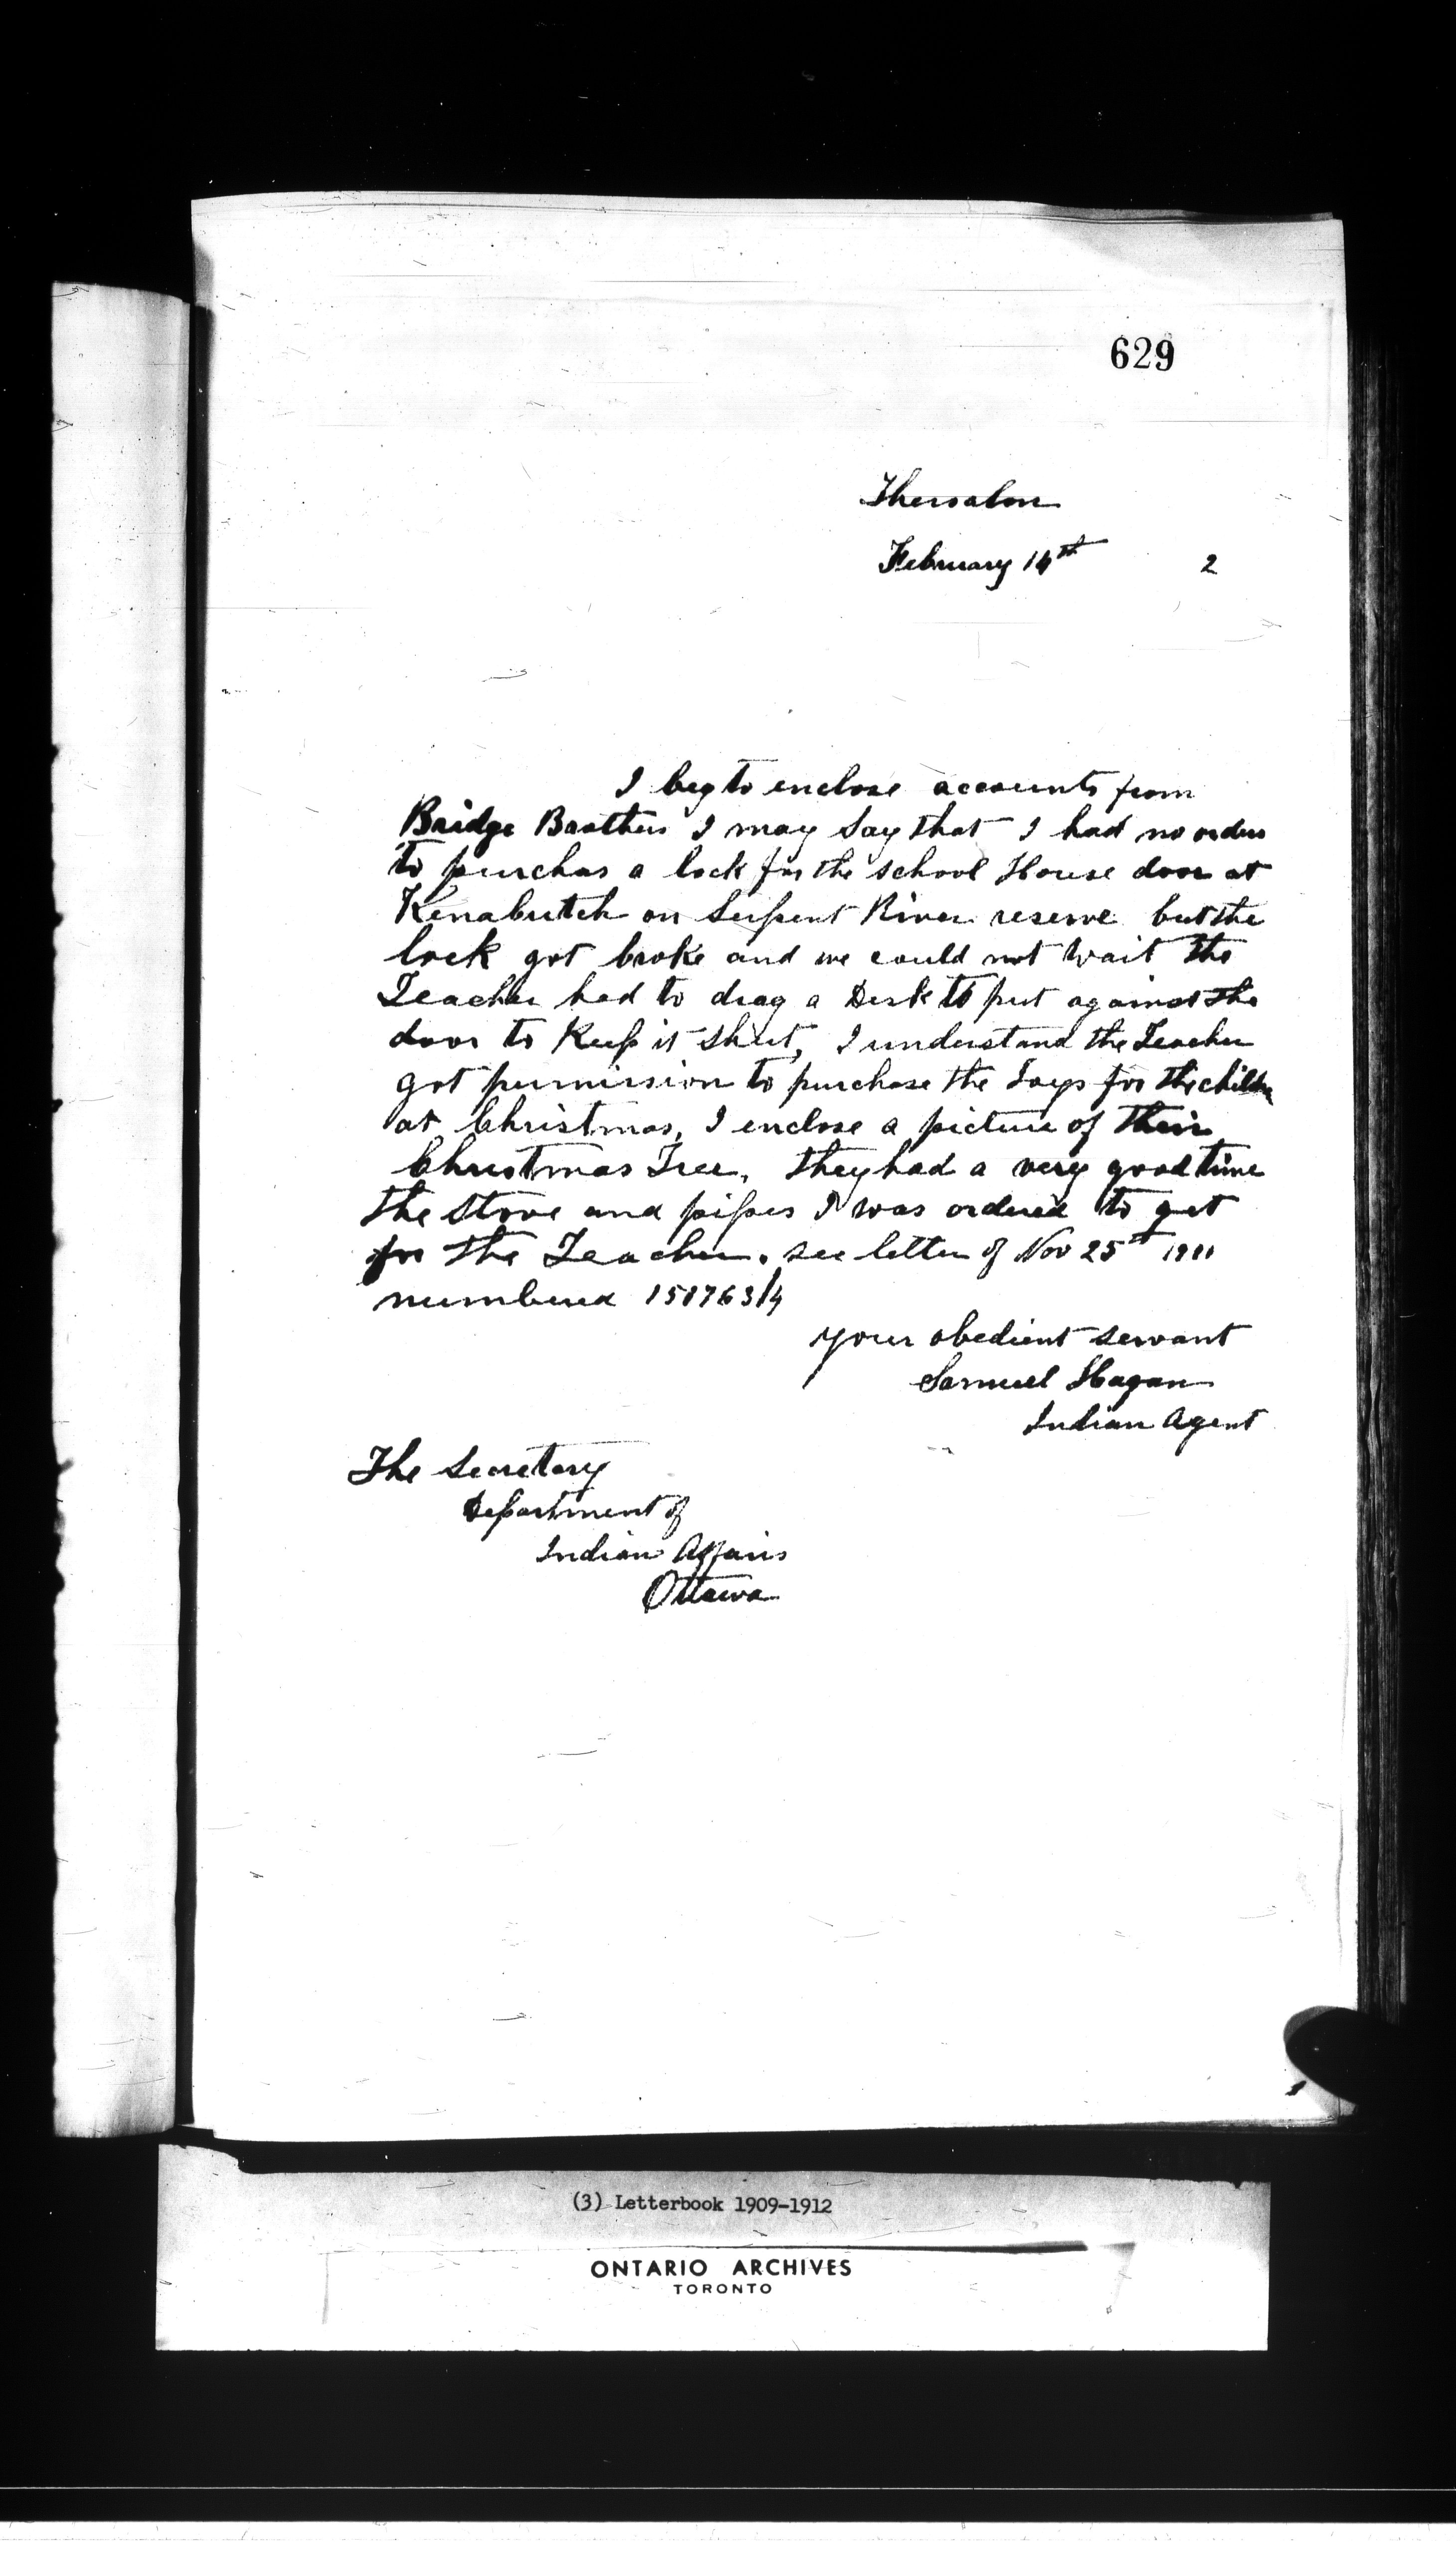 629
Thessalon
February 14th 2
I beg to enclose accounts from
Bridge Brothers I may say that I had no order
to purchas a lock for the school House door at
Kenabutch on Serpent River reserve but the
lock got broke and we could not wait the
Teacher had to drag a Desk to put against the
door to Keep it shut, I understand the Teacher
got permission to purchase the Toys for the childre
at Christmas, I enclose a picture of their
Christmas Tree, they had a very good time
the stove and pipes I was ordered to get
for the Teacher. see letter of Nov 25th 1911
numbered
your obedient servant
Samuel Hagan
Indian Agent
The Secretary
Department of
Indian Affairs
Ottawa
(3) Letterbook 1909-1912
ONTARIO ARCHIVES
TORONTO